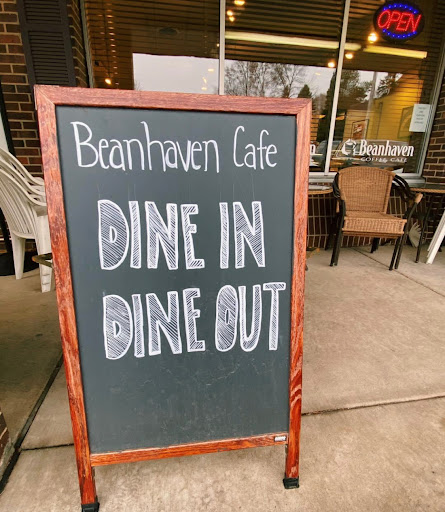 OPEN
Beanhaven
COFFEE CAFE
Beanhaven Cafe
DINE IN
DINE OUT